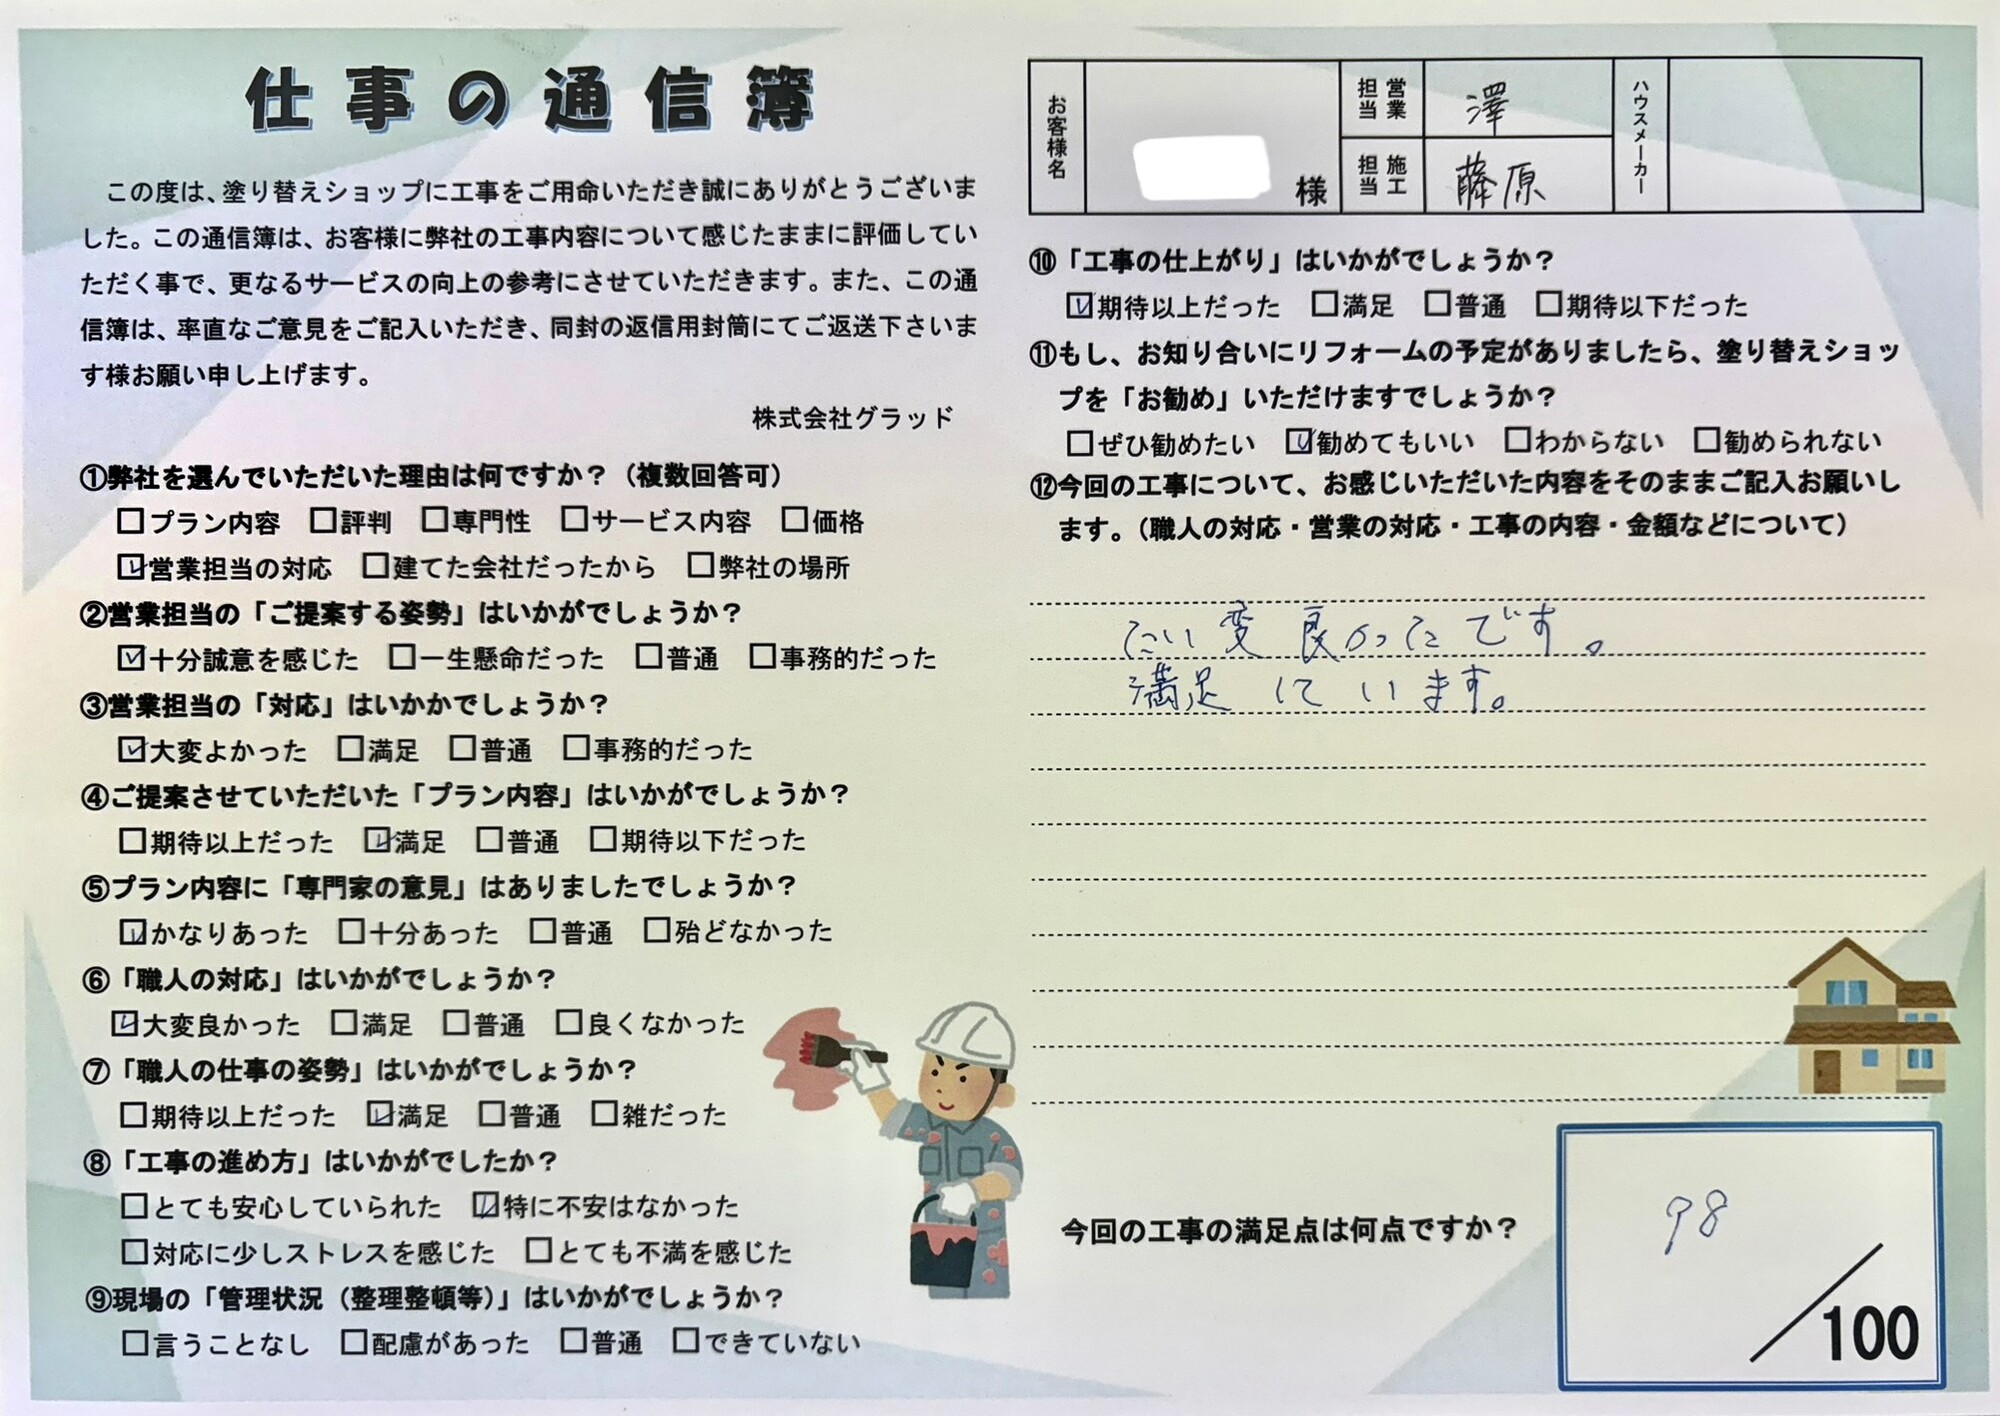 仕事の通信簿
この度は、塗り替えショップに工事をご用命いただき誠にありがとうございま
した。この通信簿は、お客様に弊社の工事内容について感じたままに評価してい
ただく事で、更なるサービスの向上の参考にさせていただきます。また、この通
信簿は、率直なご意見をご記入いただき、同封の返信用封筒にてご返送下さいま
す様お願い申し上げます。
株式会社グラッド
①弊社を選んでいただいた理由は何ですか？（複数回答可）
□プラン内容 □評判 □専門性 □サービス内容 □価格
☑営業担当の対応 □建てた会社だったから □弊社の場所
②営業担当の「ご提案する姿勢」はいかがでしょうか？
☑十分誠意を感じた □一生懸命だった □普通 □事務的だった
③営業担当の「対応」はいかかでしょうか？
☑大変よかった □満足 □普通 □事務的だった
④ご提案させていただいた「プラン内容」はいかがでしょうか？
□期待以上だった ☑満足 □普通 □期待以下だった
⑤プラン内容に「専門家の意見」はありましたでしょうか？
☑かなりあった □十分あった □普通 □殆どなかった
⑥「職人の対応」はいかがでしょうか？
☑大変良かった □満足 □普通 □良くなかった
⑦「職人の仕事の姿勢」はいかがでしょうか？
□期待以上だった ☑満足 □普通 □雑だった
⑧「工事の進め方」はいかがでしたか？
□とても安心していられた ☑特に不安はなかった
□対応に少しストレスを感じた □とても不満を感じた
⑨現場の「管理状況（整理整頓等）」はいかがでしょうか？
□言うことなし □配慮があった □普通 □できていない
お客様名
様
営業担当
澤
施工担当
藤原
ハウスメーカー
⑩「工事の仕上がり」はいかがでしょうか？
☑期待以上だった □満足 □普通 □期待以下だった
⑪もし、お知り合いにリフォームの予定がありましたら、塗り替えショッ
プを「お勧め」いただけますでしょうか？
□ぜひ勧めたい ☑勧めてもいい □わからない □勧められない
⑫今回の工事について、お感じいただいた内容をそのままご記入お願いし
ます。（職人の対応・営業の対応・工事の内容・金額などについて）
たい変良かったです。
満足しています。
今回の工事の満足点は何点ですか？
98
/100